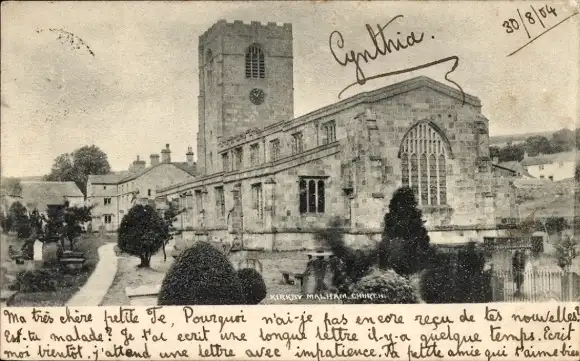 30/8/04
Cynthia.
KIRKBY MALHAM CHURCH.
Ma très chère petite Te, Pourquoi n'ai-je pas encore reçu de tes nouvelles?
Est-tu malade? Je t'ai ecrit une longue lettre il-y-a quelque temps. Ecrit
moi bientôt, j'attend une lettre avec impatience. Ta petite amie qui t'aime